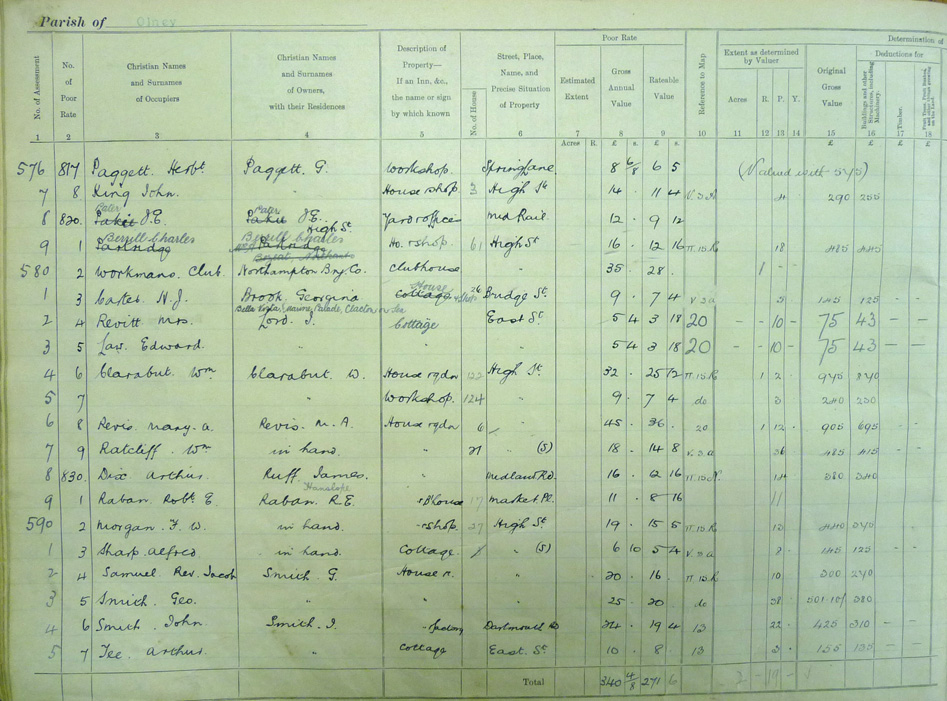 Parish of Olney
Poor Rate
Determination of
No. of Assessment
No. of Poor Rate
Christian Names and Surnames of Occupiers
Christian Names and Surnames of Owners, with their Residences
Description of Property— If an Inn, &c., the name or sign by which known
No. of House
Street, Place, Name, and Precise Situation of Property
Estimated Extent
Gross Annual Value
Rateable Value
Reference to Map
Extent as determined by Valuer
Acres R. P. Y.
Original Gross Value
Deductions for
Buildings and other Structures, including Machinery.
Timber.
1 2 3 4 5 6 7 8 9 10 11 12 13 14 15 16 17 18
Acres R. £ s. £ s. £ £ £ £
576 817 Paggett. Herbt Paggett. G. Workshop. Spring Lane 8 6/8 6 5 (Valued with 575)
7 8 King John. " House shop 3 High St 14 · 11 4 290 255
8 820. Cater J.E. Cater J.E. Yard office Mid Rail. 12 · 9 12
9 1 Berrill Charles Berrill Charles High St Ho. & shop. 61 High St 16 · 12 16 18 485 445
580 2 Workmans. Club Northampton Bry. Co. Clubhouse " 35 28 ·
1 3 N. J. Brook. Georgina House & Shop 26 Bridge St. 9 · 7 4 145 125
2 4 Revitt Mrs. Lord. J. Cottage East St. 5 4 3 18 20 - - 10 - 75 43 - -
3 5 Law. Edward. " " " 5 4 3 18 20 - - 10 - 75 43 - -
4 6 Clarabut. Wm Clarabut. W. House & gdn 122 High St. 32 · 25 12 1 2 945 840
5 7 " Workshop. 124 " 9 · 7 4 do 3 240 230
6 8 Revis. Mary. A. Revis. M. A. House & gdn 6 " 45 · 36 · 20 1 12 905 695
7 9 Ratcliff. Wm in hand. " 21 " (S) 18 · 14 8 36 485 415
8 830. Dix Arthur. Ruff. James. Hanslope " Midland Rd. 16 · 12 16 14 380 340
9 1 Raban. Robt. E. Raban. R.E. 17 Market Pl. 11 · 8 16
590 2 Morgan. F. W. in hand. " & shop. 27 High St. 19 · 15 5 13
1 3 Sharp. Alfred in hand. Cottage. " (S) 6 10 5 4 145 125
2 4 Samuel Rev. Jacob Smith G. House " 20 · 16 · 10 300 270
3 5 Smith. Geo. " " " 25 · 20 · do 38 380
4 6 Smith. John Smith. J. " factory Dartmouth Rd 24 · 19 4 13 22 · 425 310
5 7 Tee. Arthur. " Cottage East. St. 10 · 8 · 13 3 · 155 135
Total 340 4/8 271 6